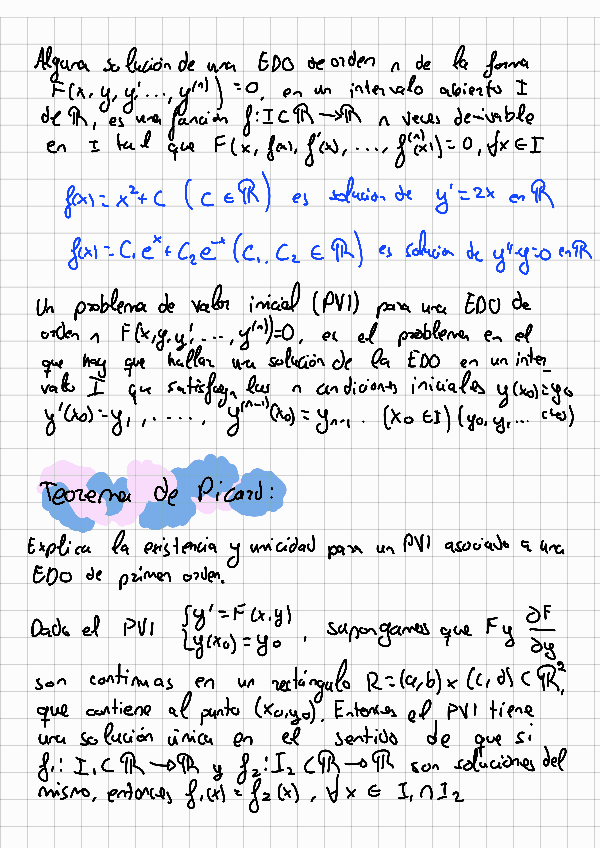 Alguna solución de una EDO de orden n de la forma
F(x, y, y', ..., y⁽ⁿ⁾) = 0, en un intervalo abierto I
de ℝ, es una función f: I ⊂ ℝ → ℝ n veces derivable
en I tal que F(x, f(x), f'(x), ..., f⁽ⁿ⁾(x)) = 0, ∀x ∈ I
f(x) = x² + C (C ∈ ℝ) es solución de y' = 2x en ℝ
f(x) = C₁eˣ + C₂e⁻ˣ (C₁, C₂ ∈ ℝ) es solución de y''-y=0 en ℝ
Un problema de valor inicial (PVI) para una EDO de
orden n F(x, y, y', ..., y⁽ⁿ⁾)=0, es el problema en el
que hay que hallar una solución de la EDO en un inter
valo I que satisfaga las n condiciones iniciales y(x₀)=y₀
y'(x₀)=y₁, ..., y⁽ⁿ⁻¹⁾(x₀) = yₙ₋₁. (x₀ ∈ I) (y₀, y₁, ... ctes)
Teorema de Picard:
Explica la existencia y unicidad para un PVI asociado a una
EDO de primer orden.
Dado el PVI { y' = F(x,y)
y(x₀) = y₀ , supongamos que F y ∂F/∂y
son continuas en un rectángulo R = (a,b) × (c,d) ⊂ ℝ²,
que contiene al punto (x₀,y₀). Entonces el PVI tiene
una solución única en el sentido de que si
f₁: I₁ ⊂ ℝ → ℝ y f₂: I₂ ⊂ ℝ → ℝ son soluciones del
mismo, entonces f₁(x) = f₂(x), ∀x ∈ I₁ ∩ I₂